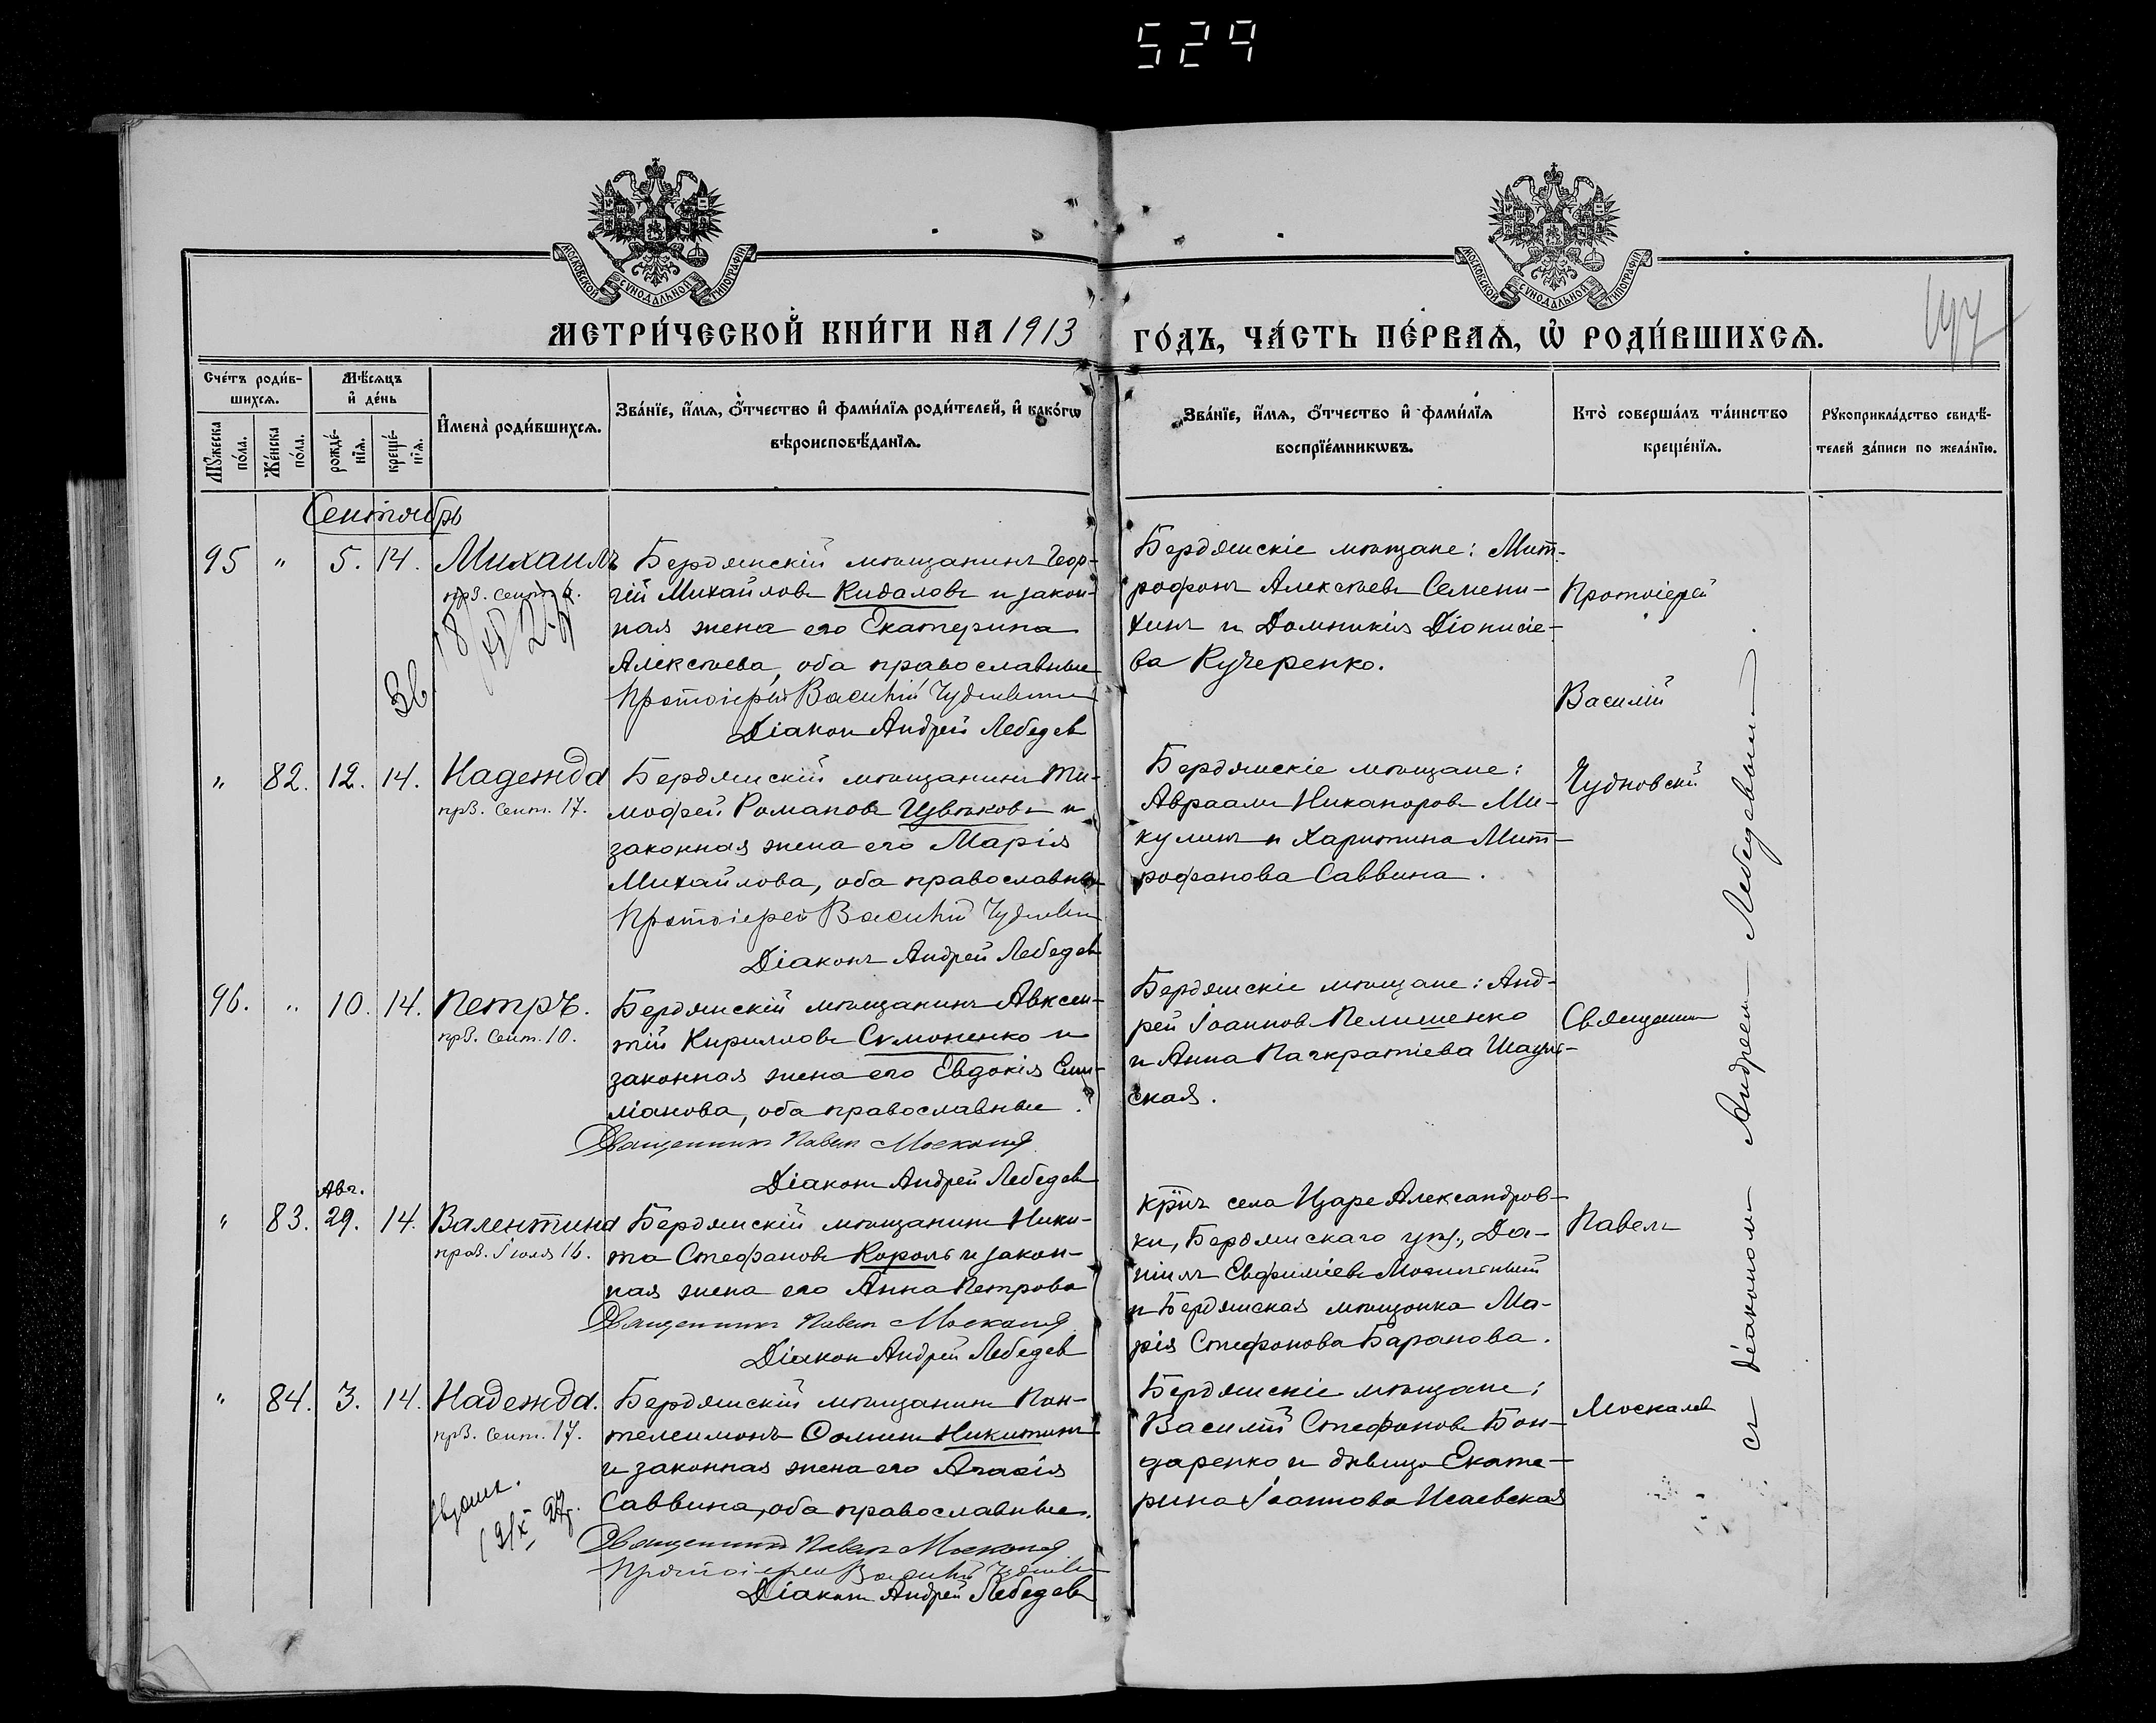 529
МОСКОВСКОЙ СѴНОДАЛЬНОЙ ТИПОГРАФІИ
МОСКОВСКОЙ СѴНОДАЛЬНОЙ ТИПОГРАФІИ
МЕТРИ́ЧЕСКОЙ КНИ́ГИ НА 1913 ГО́ДЪ, ЧА́СТЬ ПЕ́РВАѦ, Ѡ҆ РОДИ́ВШИХСѦ.
197
Сче́тъ роди́в-
шихсѧ.
Мꙋ́жеска
по́ла.
Же́нска
по́ла.
Мѣ́сѧцъ
и҆ де́нь
рожде́-
нїѧ.
креще́-
нїѧ.
И҆мена̀ роди́вшихсѧ.
Зва́нїе, и҆́мѧ, ѻ҆́тчество и҆ фами́лїѧ роди́телей, и҆ како́гѡ
вѣроисповѣ́данїѧ.
Зва́нїе, и҆́мѧ, ѻ҆́тчество и҆ фами́лїѧ
воспрїе́мникѡвъ.
Кто̀ соверша́лъ та́инство
креще́нїѧ.
Рꙋкоприкла́дство свидѣ́-
телей за́писи по жела́нїю.
Сентябрь
95 " 5. 14. Михаилъ
прз. Сент. 6.
Бердянскій мѣщанинъ Геор-
гій Михайловъ Кидаловъ и закон-
ная жена его Екатерина
Алексѣева, оба православные
Протоіерей Василій Чудновскій
Діакон Андрей Лебедев
Бердянскіе мѣщане: Мит-
рофанъ Алексѣевъ Семени-
хинъ и Домникія Діонисіе-
ва Кучеренко.
Протоіерей
Василій
Чудновскій
" 82. 12. 14. Надежда
прз. Сент. 17.
Бердянскій мѣщанинъ Ти-
мофей Романовъ Цвѣтковъ и
законная жена его Марія
Михайлова, оба православные
Протоіерей Василій Чудновскій
Діаконъ Андрей Лебедев
Бердянскіе мѣщане:
Авраамъ Никаноровъ Ми-
кулинъ и Харитина Мит-
рофанова Саввина.
96. " 10. 14. Петръ.
прз. Сент. 10.
Бердянскій мѣщанинъ Авксен-
тій Кирилловъ Симоненко и
законная жена его Евдокія Еми-
ліанова, оба православные.
Священникъ Павелъ Москалев
Діаконъ Андрей Лебедев
Бердянскіе мѣщане: Анд-
рей Іоанновъ Пелишенко
и Анна Панкратіева
ская.
Священникъ
Павелъ
Москалевъ
съ діакономъ Андреемъ Лебедевымъ
Авг.
" 83. 29. 14. Валентина
праз. Іюля 16.
Бердянскій мѣщанинъ Ники-
та Стефановъ Король и закон-
ная жена его Анна Петрова
Священникъ Павелъ Москалев
Діакон Андрей Лебедев
кр̃нъ села ЦареАлександров-
ки, Бердянскаго уѣз., Да-
ніилъ Евфиміевъ
и Бердянская мѣщанка Ма-
рія Стефанова Баранова.
" 84. 3. 14. Надежда.
прз. Сент. 17.
Бердянскій мѣщанинъ Пан-
телеимонъ Ѳоминъ Никитинъ
и законная жена его Агаѳія
Саввина, оба православные.
Священникъ Павелъ Москалев
Протоіерей Василій Чудновскій
Діаконъ Андрей Лебедев
Бердянскіе мѣщане:
Василій Стефановъ Бон-
даренко и дѣвица Екате-
рина Іоаннова Исаевская